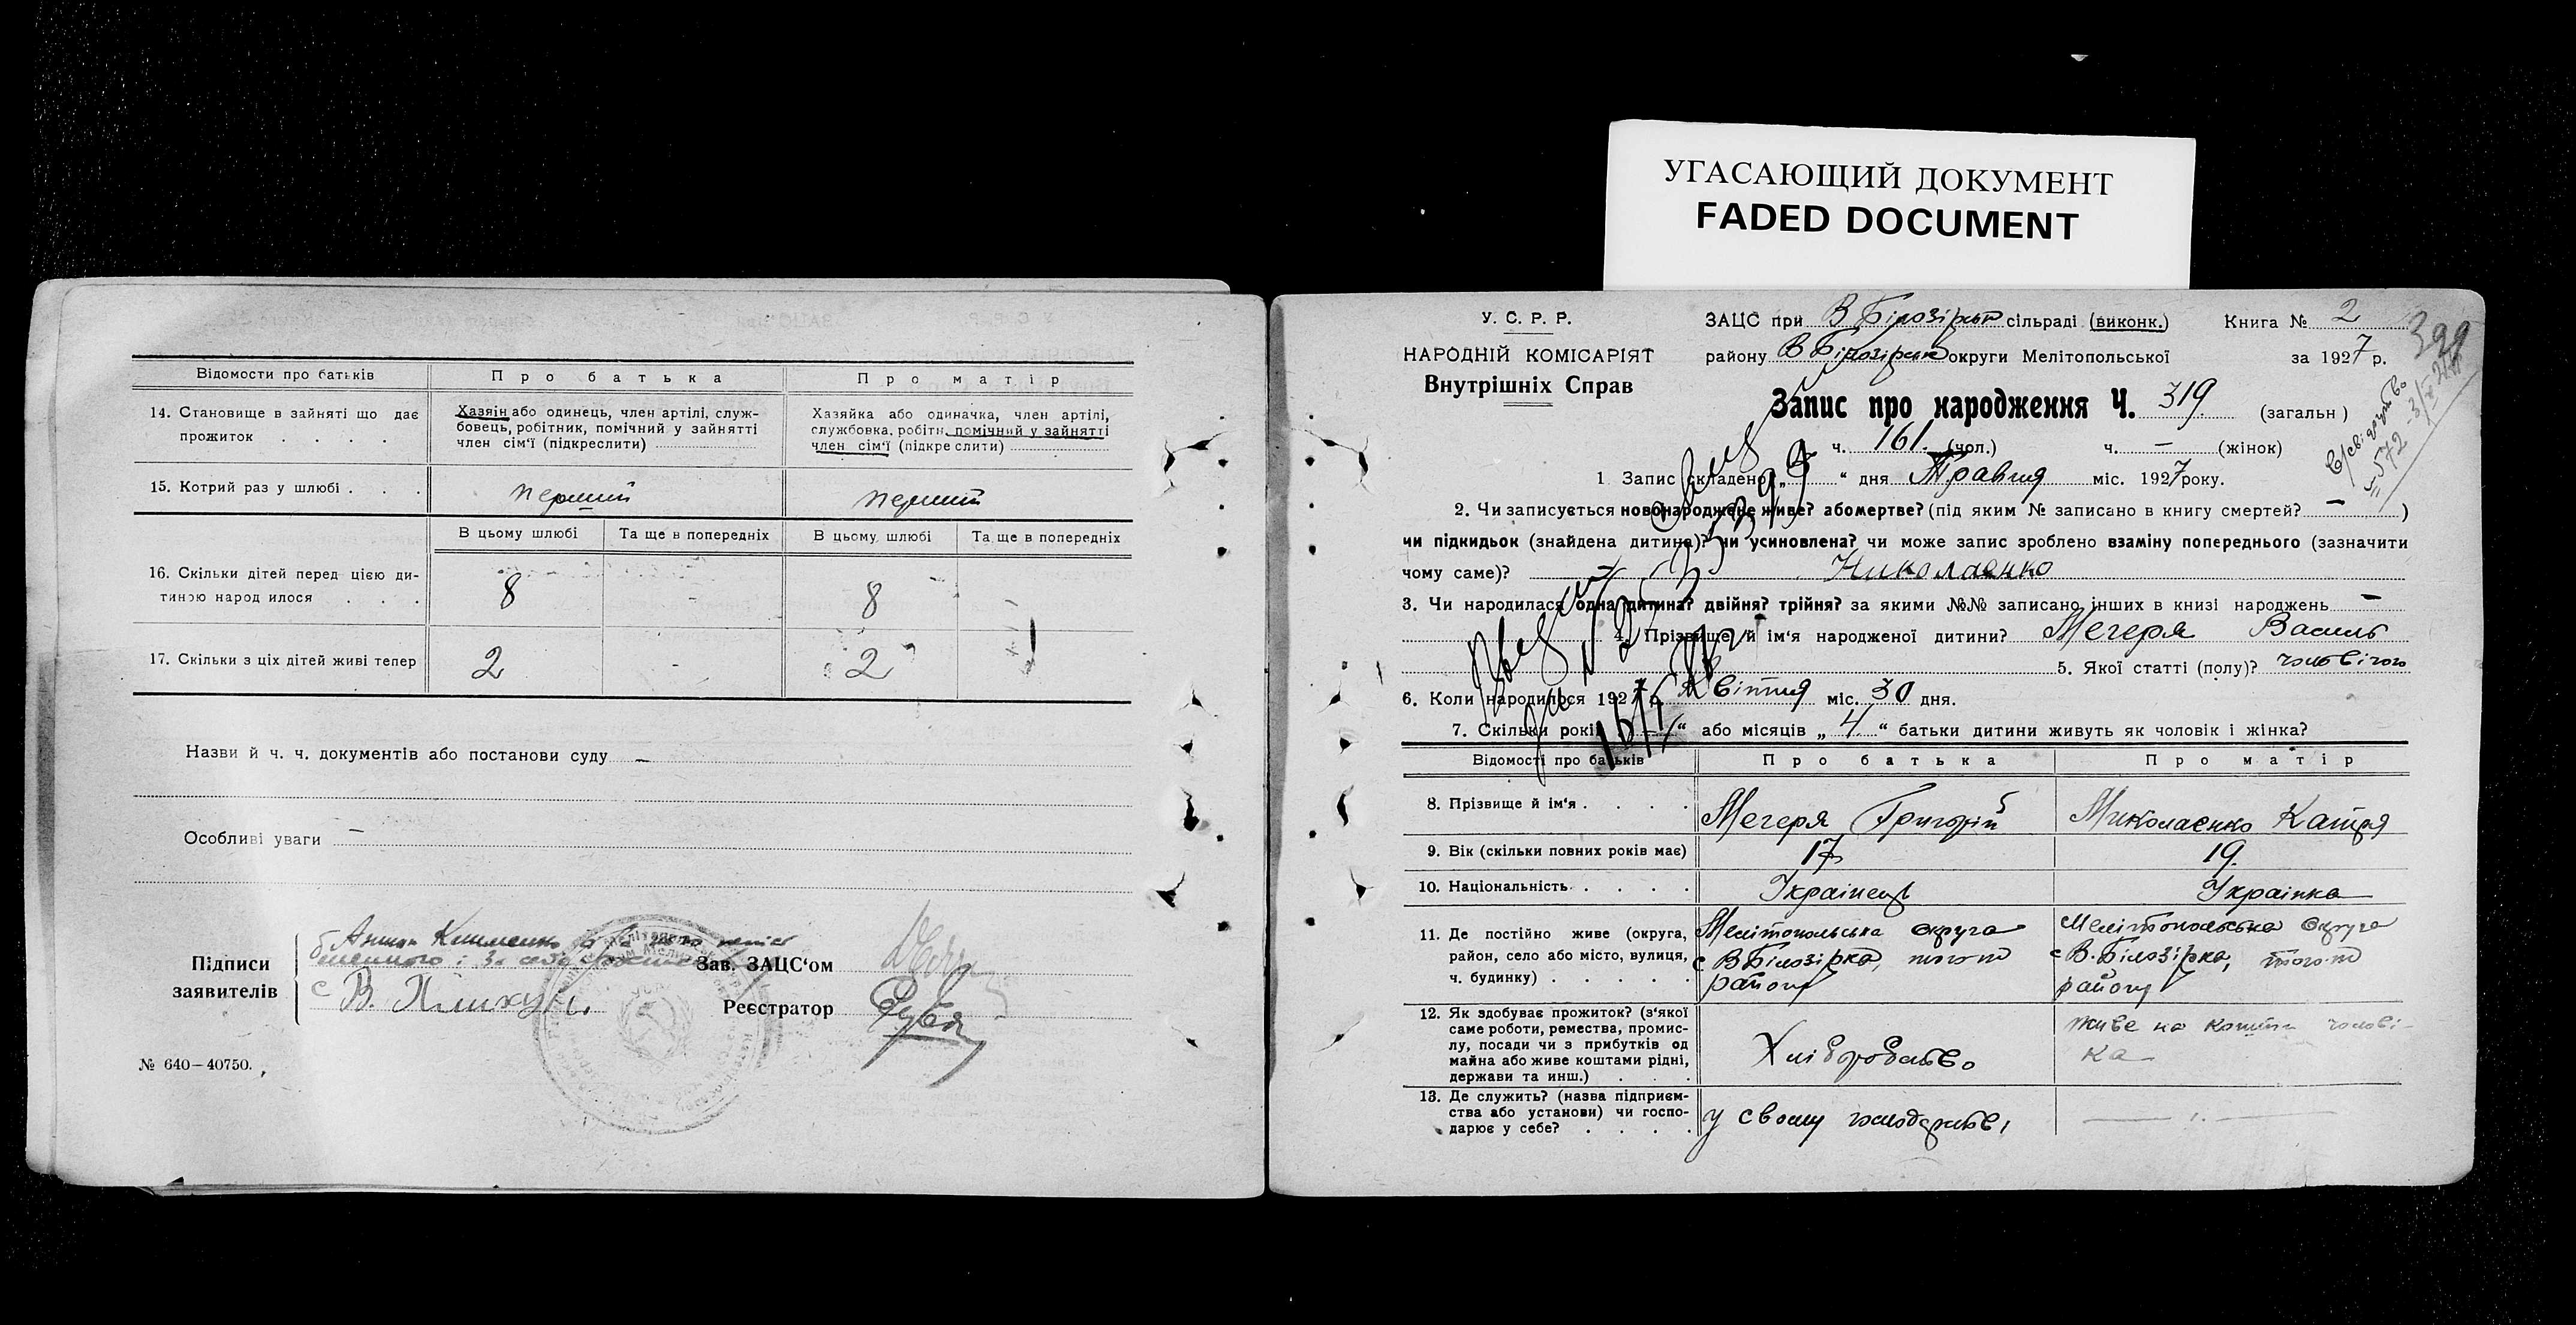 УГАСАЮЩИЙ ДОКУМЕНТ
FADED DOCUMENT
Відомости про батьків
Про батька
Про матір
14. Становище в зайняті що дає прожиток . . . .
Хазяін або одинець, член артілі, служ-
бовець, робітник, помічний у зайнятті
член сім‘ї (підкреслити)
Хазяйка або одиначка, член артілі,
службовка, робітн. помічний у зайнятті
член сім‘ї (підкреслити)
15. Котрий раз у шлюбі . . .
перший
перший
В цьому шлюбі
Та ще в попередніх
В цьому шлюбі
Та ще в попередніх
16. Скільки дітей перед цією ди-
тиною народилося . . .
8
-
8
17. Скільки з ціх дітей живі тепер
2
-
2
Назви й ч. ч. документів або постанови суду —
Особливі уваги —
Підписи
заявителів
Зав. ЗАЦС‘ом
Реєстратор
№ 640—40750.
У. С. Р. Р.
НАРОДНІЙ КОМІСАРІЯТ
Внутрішніх Справ
ЗАЦС при В Білозірськ сільраді (виконк.)
Книга № 2
району В Білозірськ округи Мелітопольської
за 1927 р.
Запис про народження Ч. 319 (загальн)
ч. 161. (чол.)
ч. — (жінок)
1 Запис складено „ “ дня Травня міс. 1927 року.
2. Чи записується новонароджене живе? або мертве? (під яким № записано в книгу смертей? — )
чи підкидьок (знайдена дитина)? чи усиновлена? чи може запис зроблено взаміну попереднього (зазначити
чому саме)? — Николаенко
3. Чи народилася одна дитина? двійня? трійня? за якими №№ записано інших в книзі народжень —
4. Прізвище й ім‘я народженої дитини? Мегеря Василь
5. Якої статті (полу)?
6. Коли народилося 1927 р. Квітня міс. 30 дня.
7. Скільки років „—“ або місяців „ 4 “ батьки дитини живуть як чоловік і жінка?
Відомості про батьків
Про батька
Про матір
8. Прізвище й ім‘я . . . .
Мегеря Григорій
Миколаєнко Катря
9. Вік (скільки повних років має)
17
19.
10. Національність . . . .
Українець
Українка
11. Де постійно живе (округа,
район, село або місто, вулиця,
ч. будинку) . . . . .
Мелітопольська округа
с В Білозірка, того-ж
району
Мелітопольська округа
с В. Білозірка, того-ж
району
12. Як здобуває прожиток? (з‘якої
саме роботи, ремества, промис-
лу, посади чи з прибутків од
майна або живе коштами рідні,
держави та инш.) . . .
Хліборобство
живе на кошти чолові-
ка
13. Де служить? (назва підприєм-
ства або установи) чи госпо-
дарює у себе? . . . .
у свому господарстві